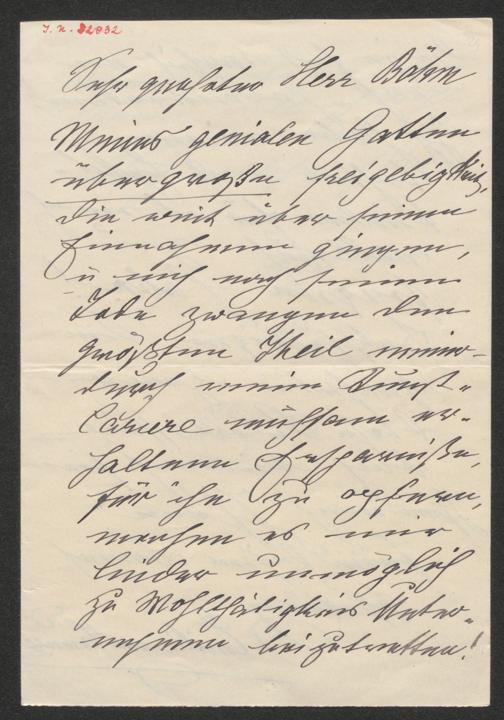 J. N. 82032
Sehr geehrter Herr Böhm
Meines genialen Gatten
übergroße Freigebigkeit,
die weit über seine
Einnahmen gingen,
u mich nach seinem
Tode zwangen den
größten Theil meiner
durch meine Kunst-
Cariere mühsam er-
haltenen Ersparniße,
für ihn zu opfern,
machen es mir
leider unmöglich
zu Wohlthätigkeits Unter-
nehmen beizutretten!